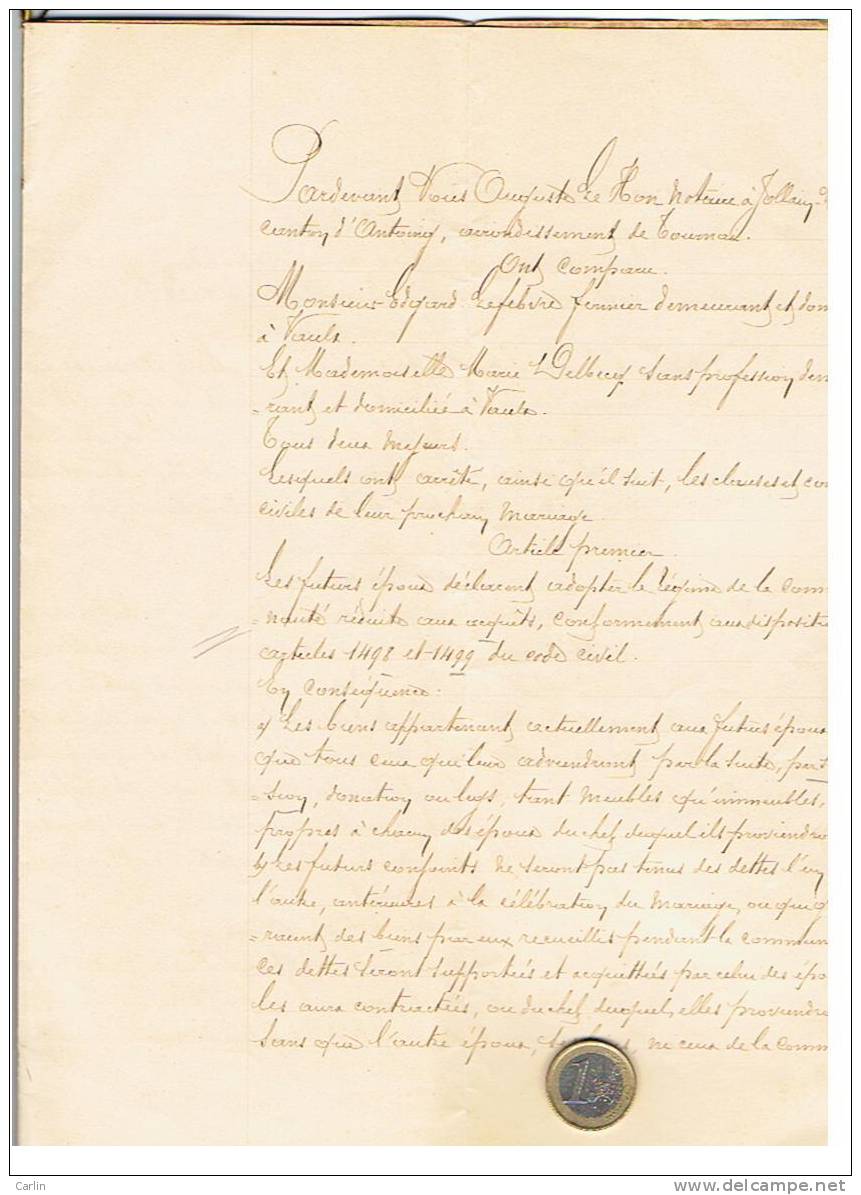 Pardevant Nous Auguste Le Hon notaire à Jollain-
canton d'Antoing, arrondissement de Tournai.
Ont comparu.
Monsieur Edgard Lefebvre fermier demeurant et dom
à Vaulx.
Et Mademoiselle Marie Delbecq sans profession dem
=rant et domiciliée à Vaulx.
Tous deux majeurs.
Lesquels ont arrêté, ainsi qu'il suit, les clauses et con
civiles de leur prochain mariage.
Article premier.
Les futurs époux déclarent adopter le régime de la comm
=nauté réduite aux acquêts, conformément aux dispositio
articles 1498 et 1499 du code civil.
En conséquence:
a) Les biens appartenant actuellement aux futurs époux
que tous ceux qui leur adviendront par la suite, par s
=sion, donation ou legs, tant meubles qu'immeubles,
propres à chacun des époux du chef duquel ils proviendro
b) Les futurs conjoints ne seront pas tenus des dettes l'un
l'autre, antérieures à la célébration du mariage, ou qui g
=raient des biens par eux recueillis pendant la commun
Ces dettes seront supportées et acquittées par celui des épo
les aura contractées, ou du chef duquel elles proviendro
sans que l'autre époux, ses biens, ne ceux de la comm
1 EURO
Carlin
delcampe.net